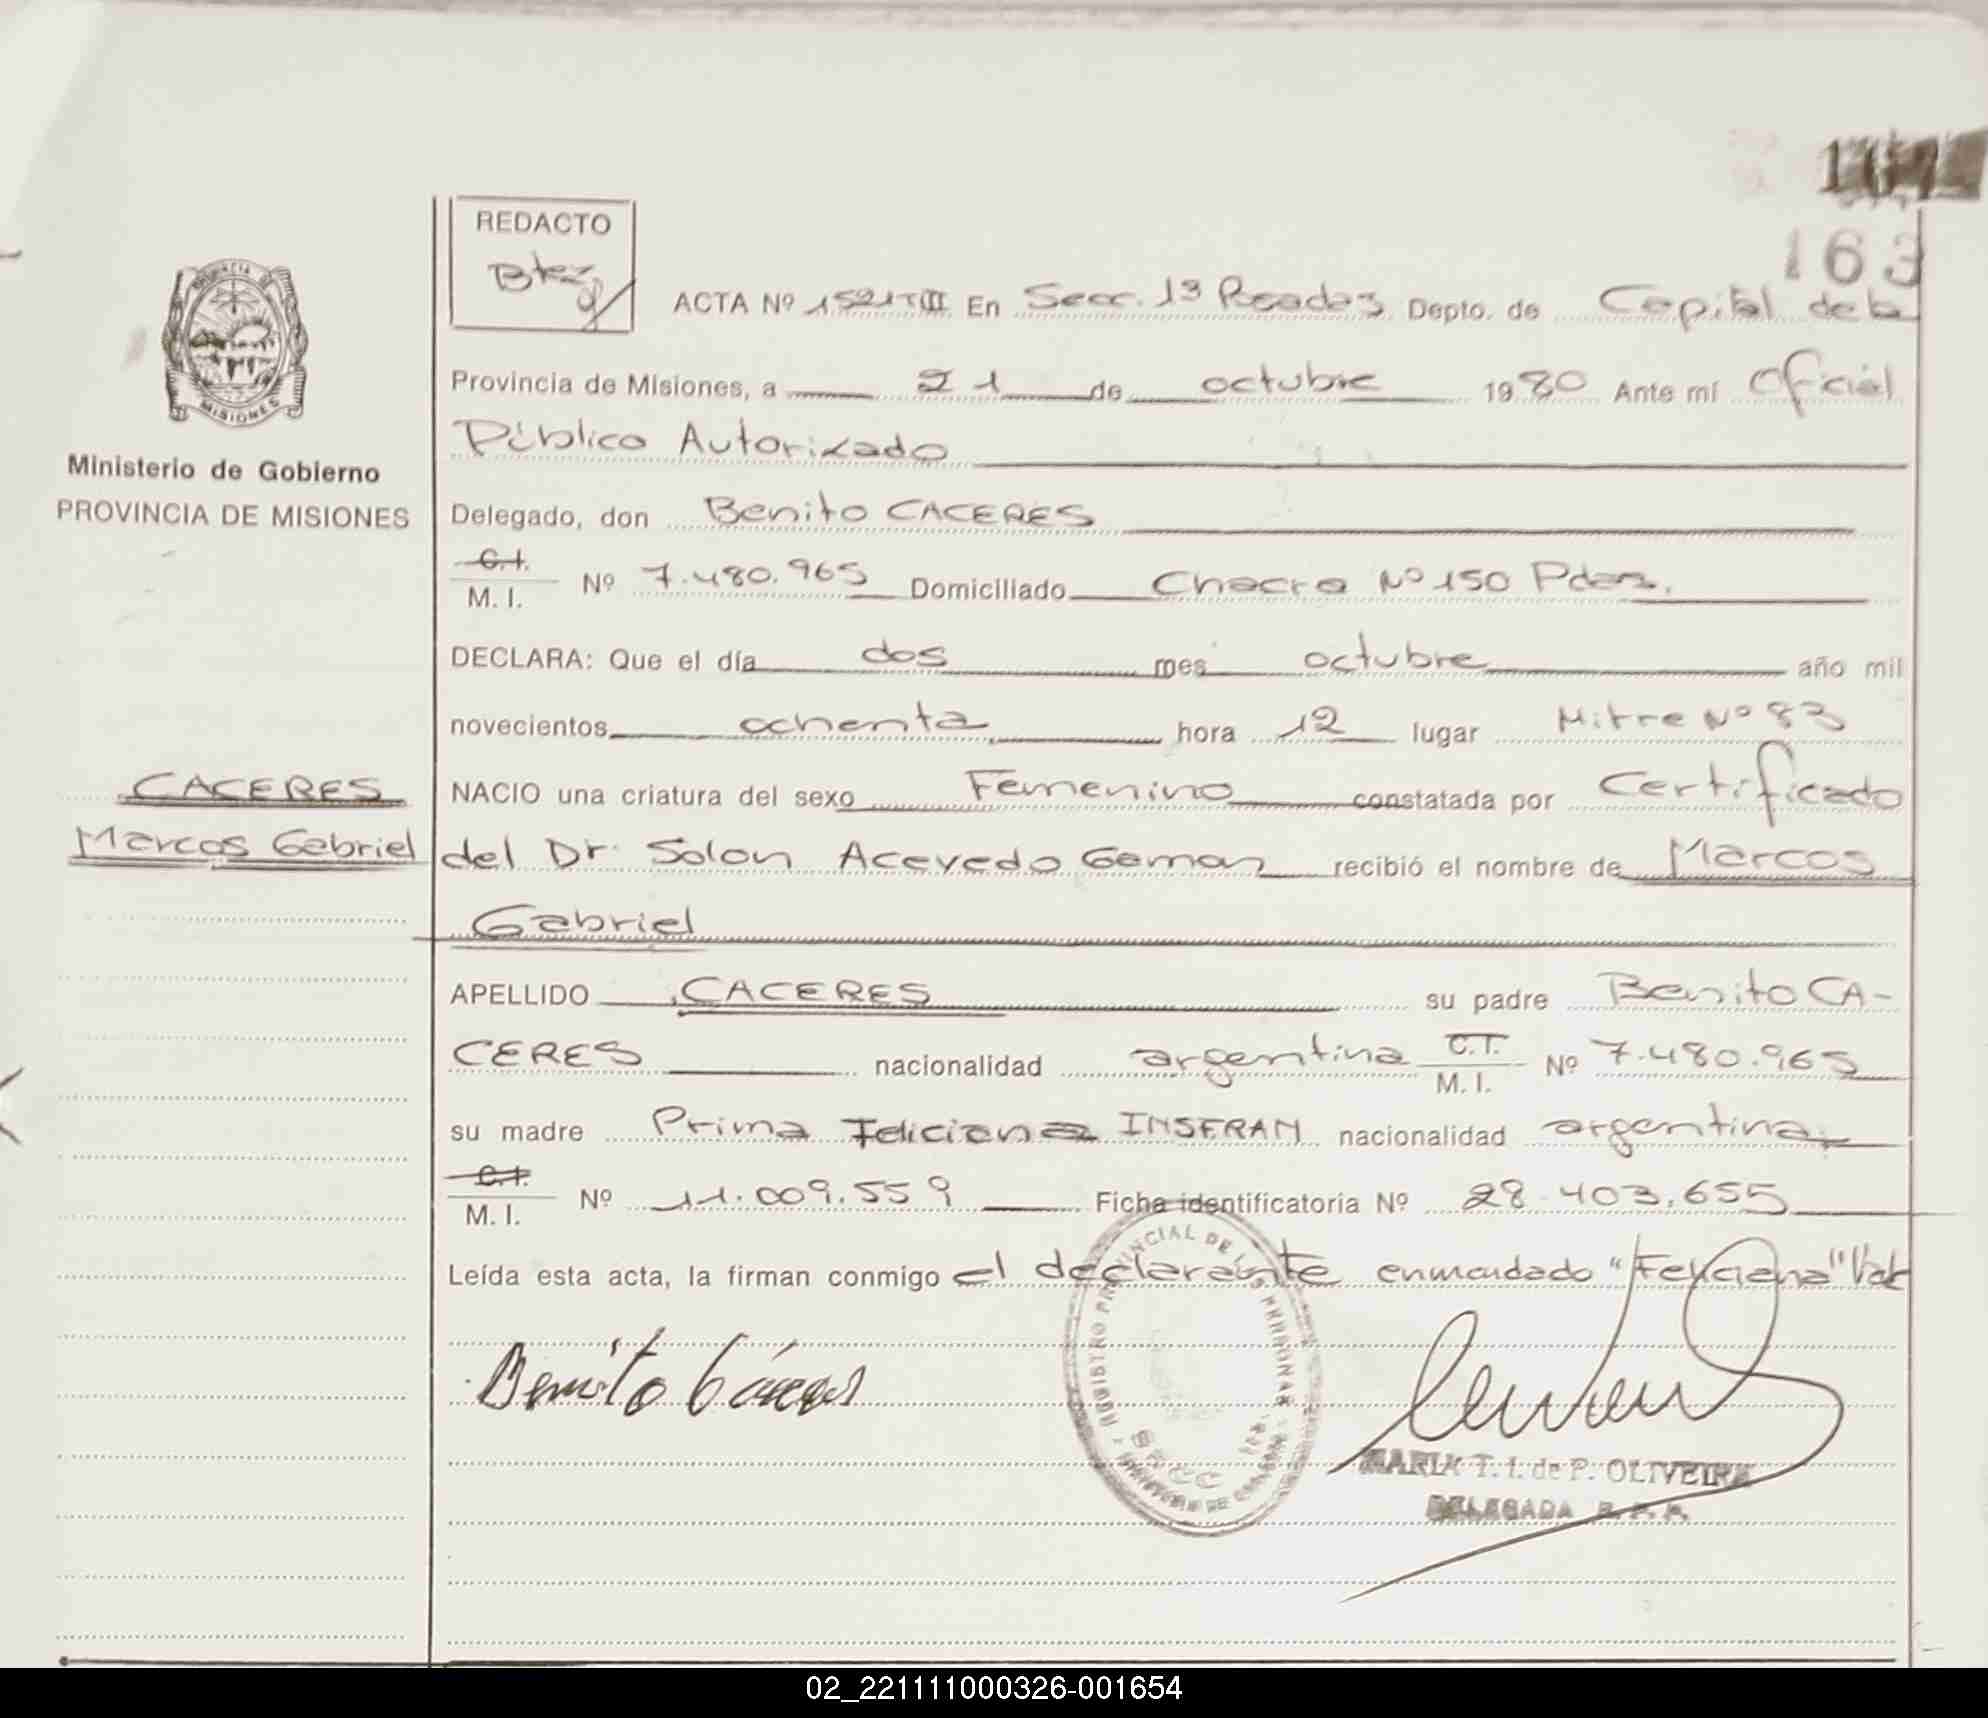 163
REDACTO
Btez
ACTA Nº 1521 TIII En Secc. 1ª Posadas Depto. de Capital de la
Provincia de Misiones, a 21 de octubre 1980 Ante mí Oficial
Público Autorizado
Ministerio de Gobierno
PROVINCIA DE MISIONES
Delegado, don Benito CACERES
C.I. M. I. Nº 7.480.965 Domiciliado Chacra Nº 150 Pdas.
DECLARA: Que el día dos mes octubre año mil
novecientos ochenta hora 12 lugar Mitre Nº 83
CACERES
Marcos Gabriel
NACIO una criatura del sexo Femenino constatada por Certificado
del Dr. Solon Acevedo Goman recibió el nombre de Marcos
Gabriel
APELLIDO CACERES su padre Benito CA-
CERES nacionalidad argentina C.I. M. I. Nº 7.480.965
su madre Prima Feliciana INSFRAN nacionalidad argentina
C.I. M. I. Nº 11.009.559 Ficha identificatoria Nº 28.403.655
Leída esta acta, la firman conmigo el declarante enmendado "Feliciana" Vale
Benito Cáceres
REGISTRO PROVINCIAL DE LAS PERSONAS
MARIA T. I. de P. OLIVEIRA
DELEGADA R. P. P.
02_221111000326-001654